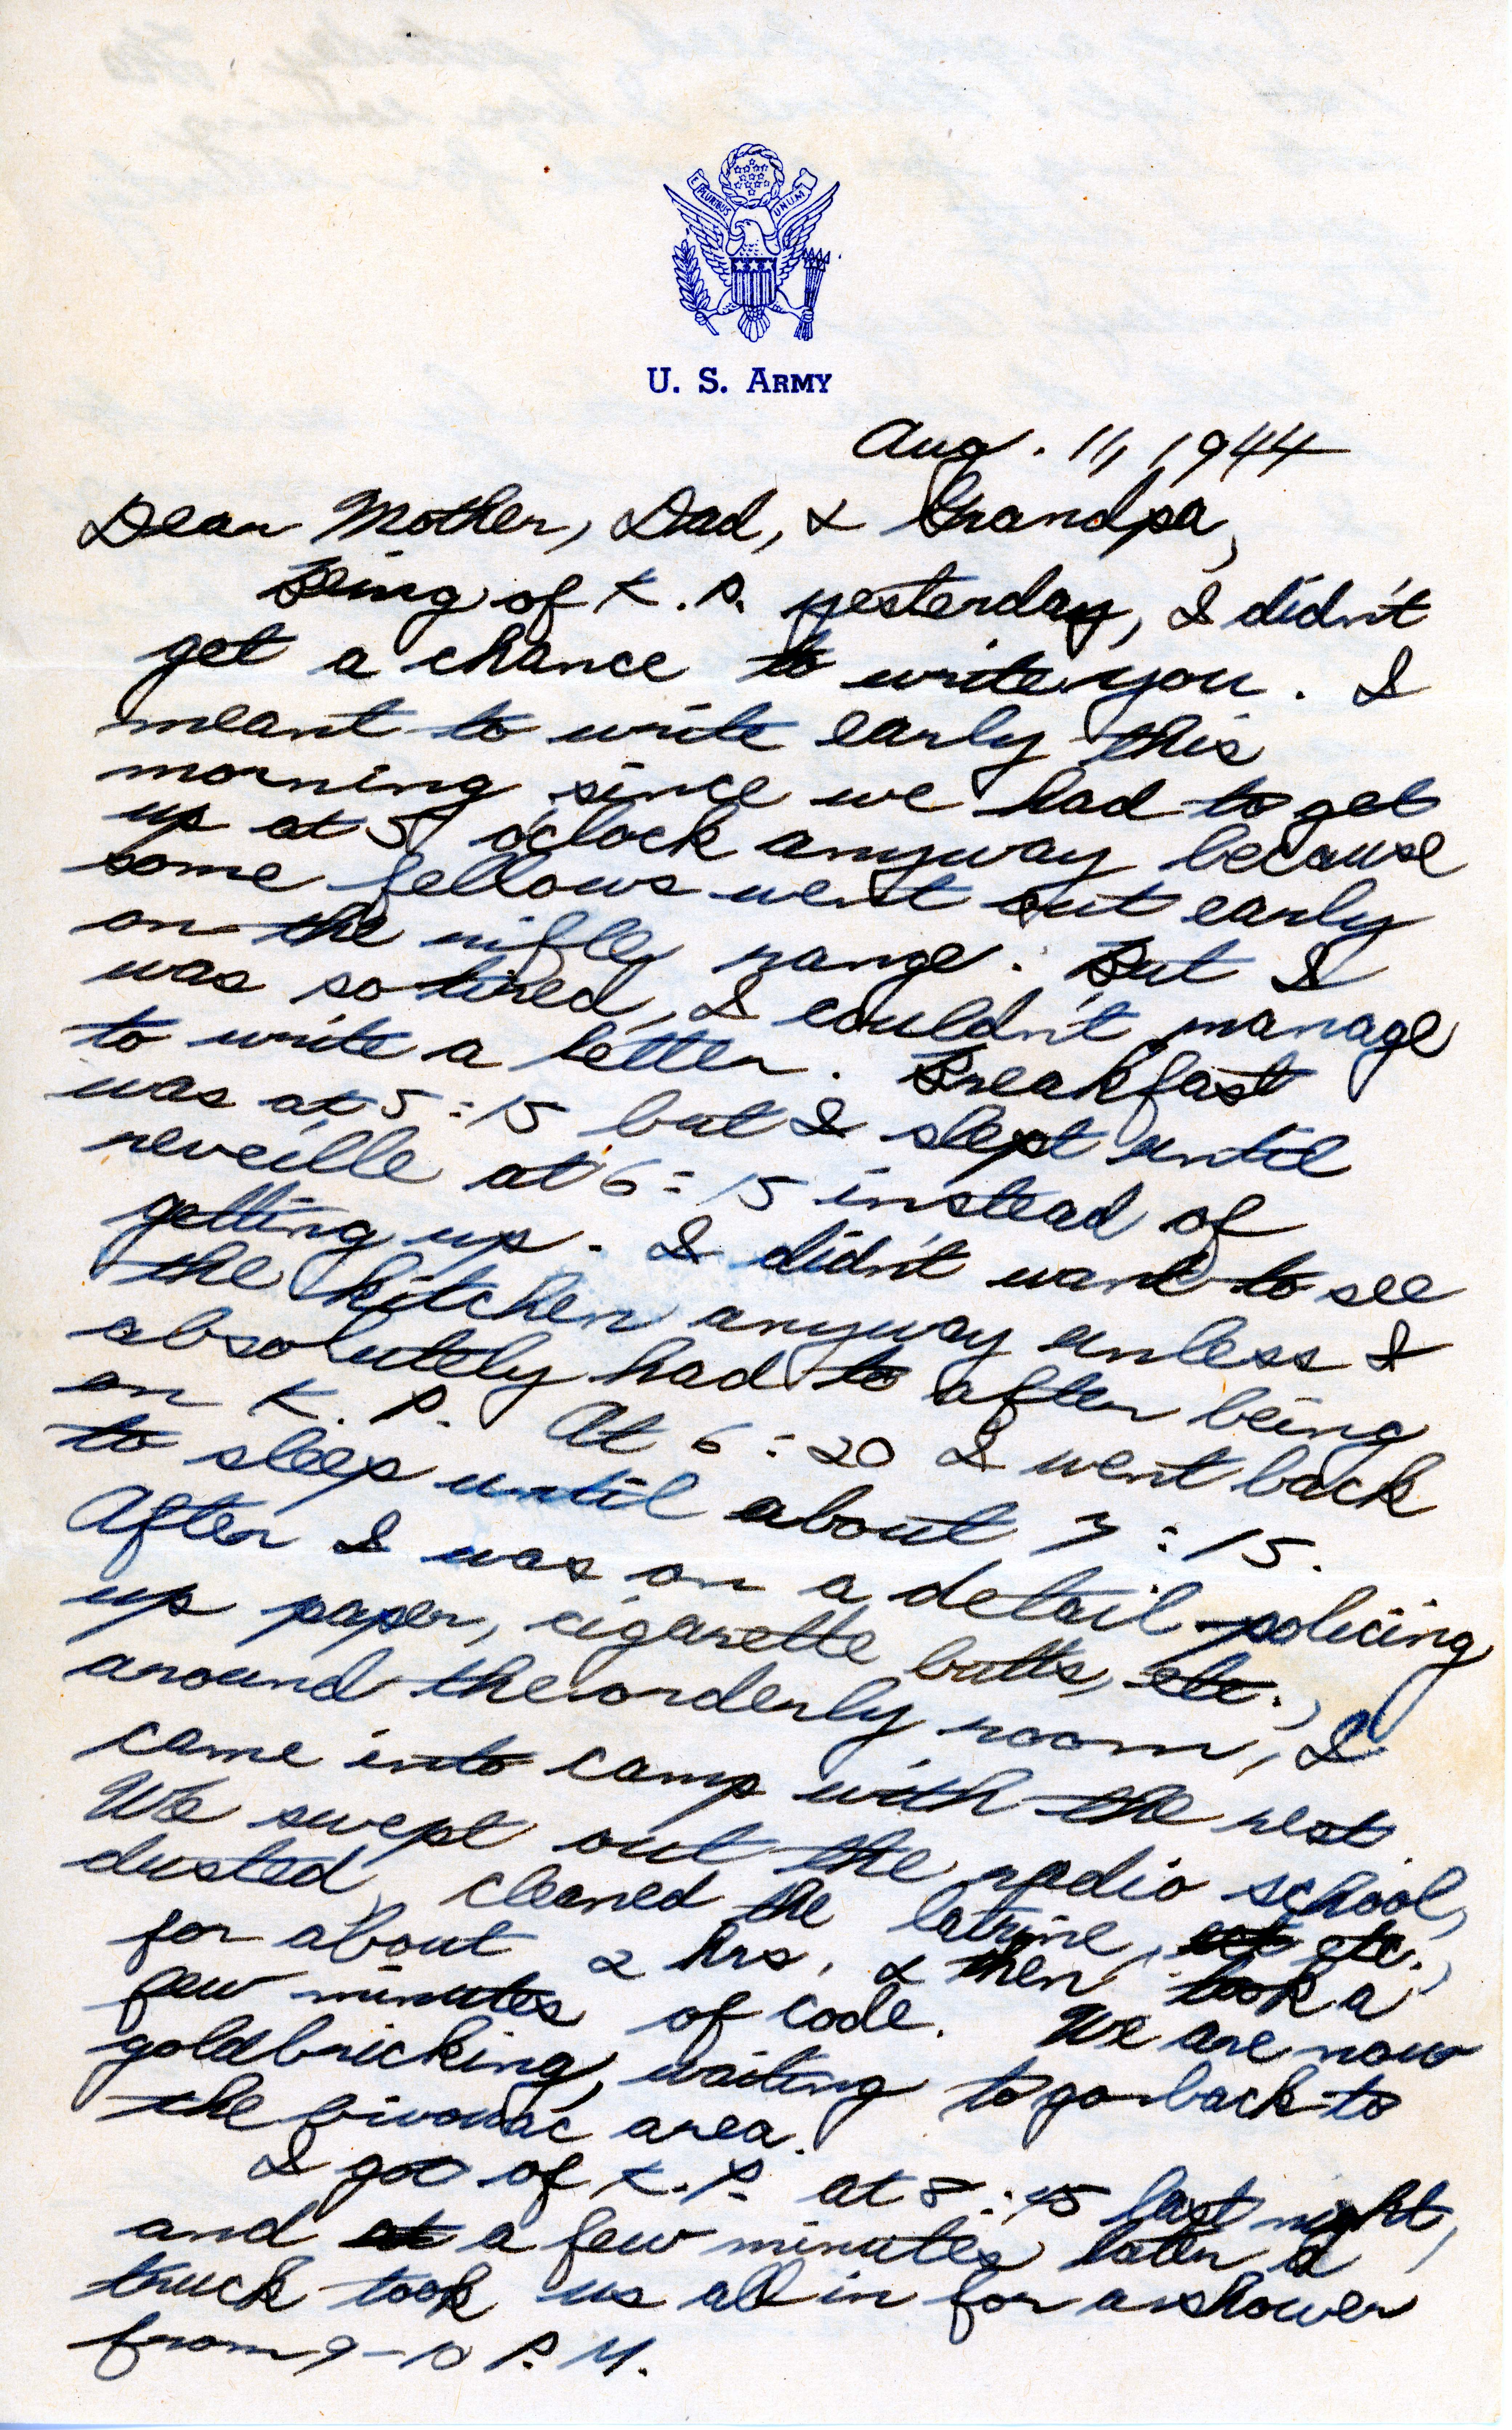 E PLURIBUS UNUM
U. S. ARMY
Aug. 11, 1944
Dear Mother, Dad, & Grandpa,
Being of K. P. yesterday, I didn't
get a chance to write you. I
meant to write early this
morning since we had to get
up at 5 o'clock anyway because
some fellows went out early
on the rifle range. But I
was so tired, I couldn't manage
to write a letter. Breakfast
was at 5:15 but I slept until
reveille at 6:15 instead of
getting up. I didn't want to see
the kitchen anyway unless I
absolutely had to after being
on K. P. At 6:20 I went back
to sleep until about 7:15.
After I was on a detail policing
up paper, cigarette butts, etc.,
around the orderly room, I
came into camp with the rest.
We swept out the radio school,
dusted, cleaned the latrine, etc.,
for about 2 hrs. & then took a
few minutes of code. We are now
goldbricking, waiting to go back to
the bivouac area.
I got of K. P. at 8:45 last night,
and a few minutes later a
truck took us all in for a shower
from 9-10 P. M.